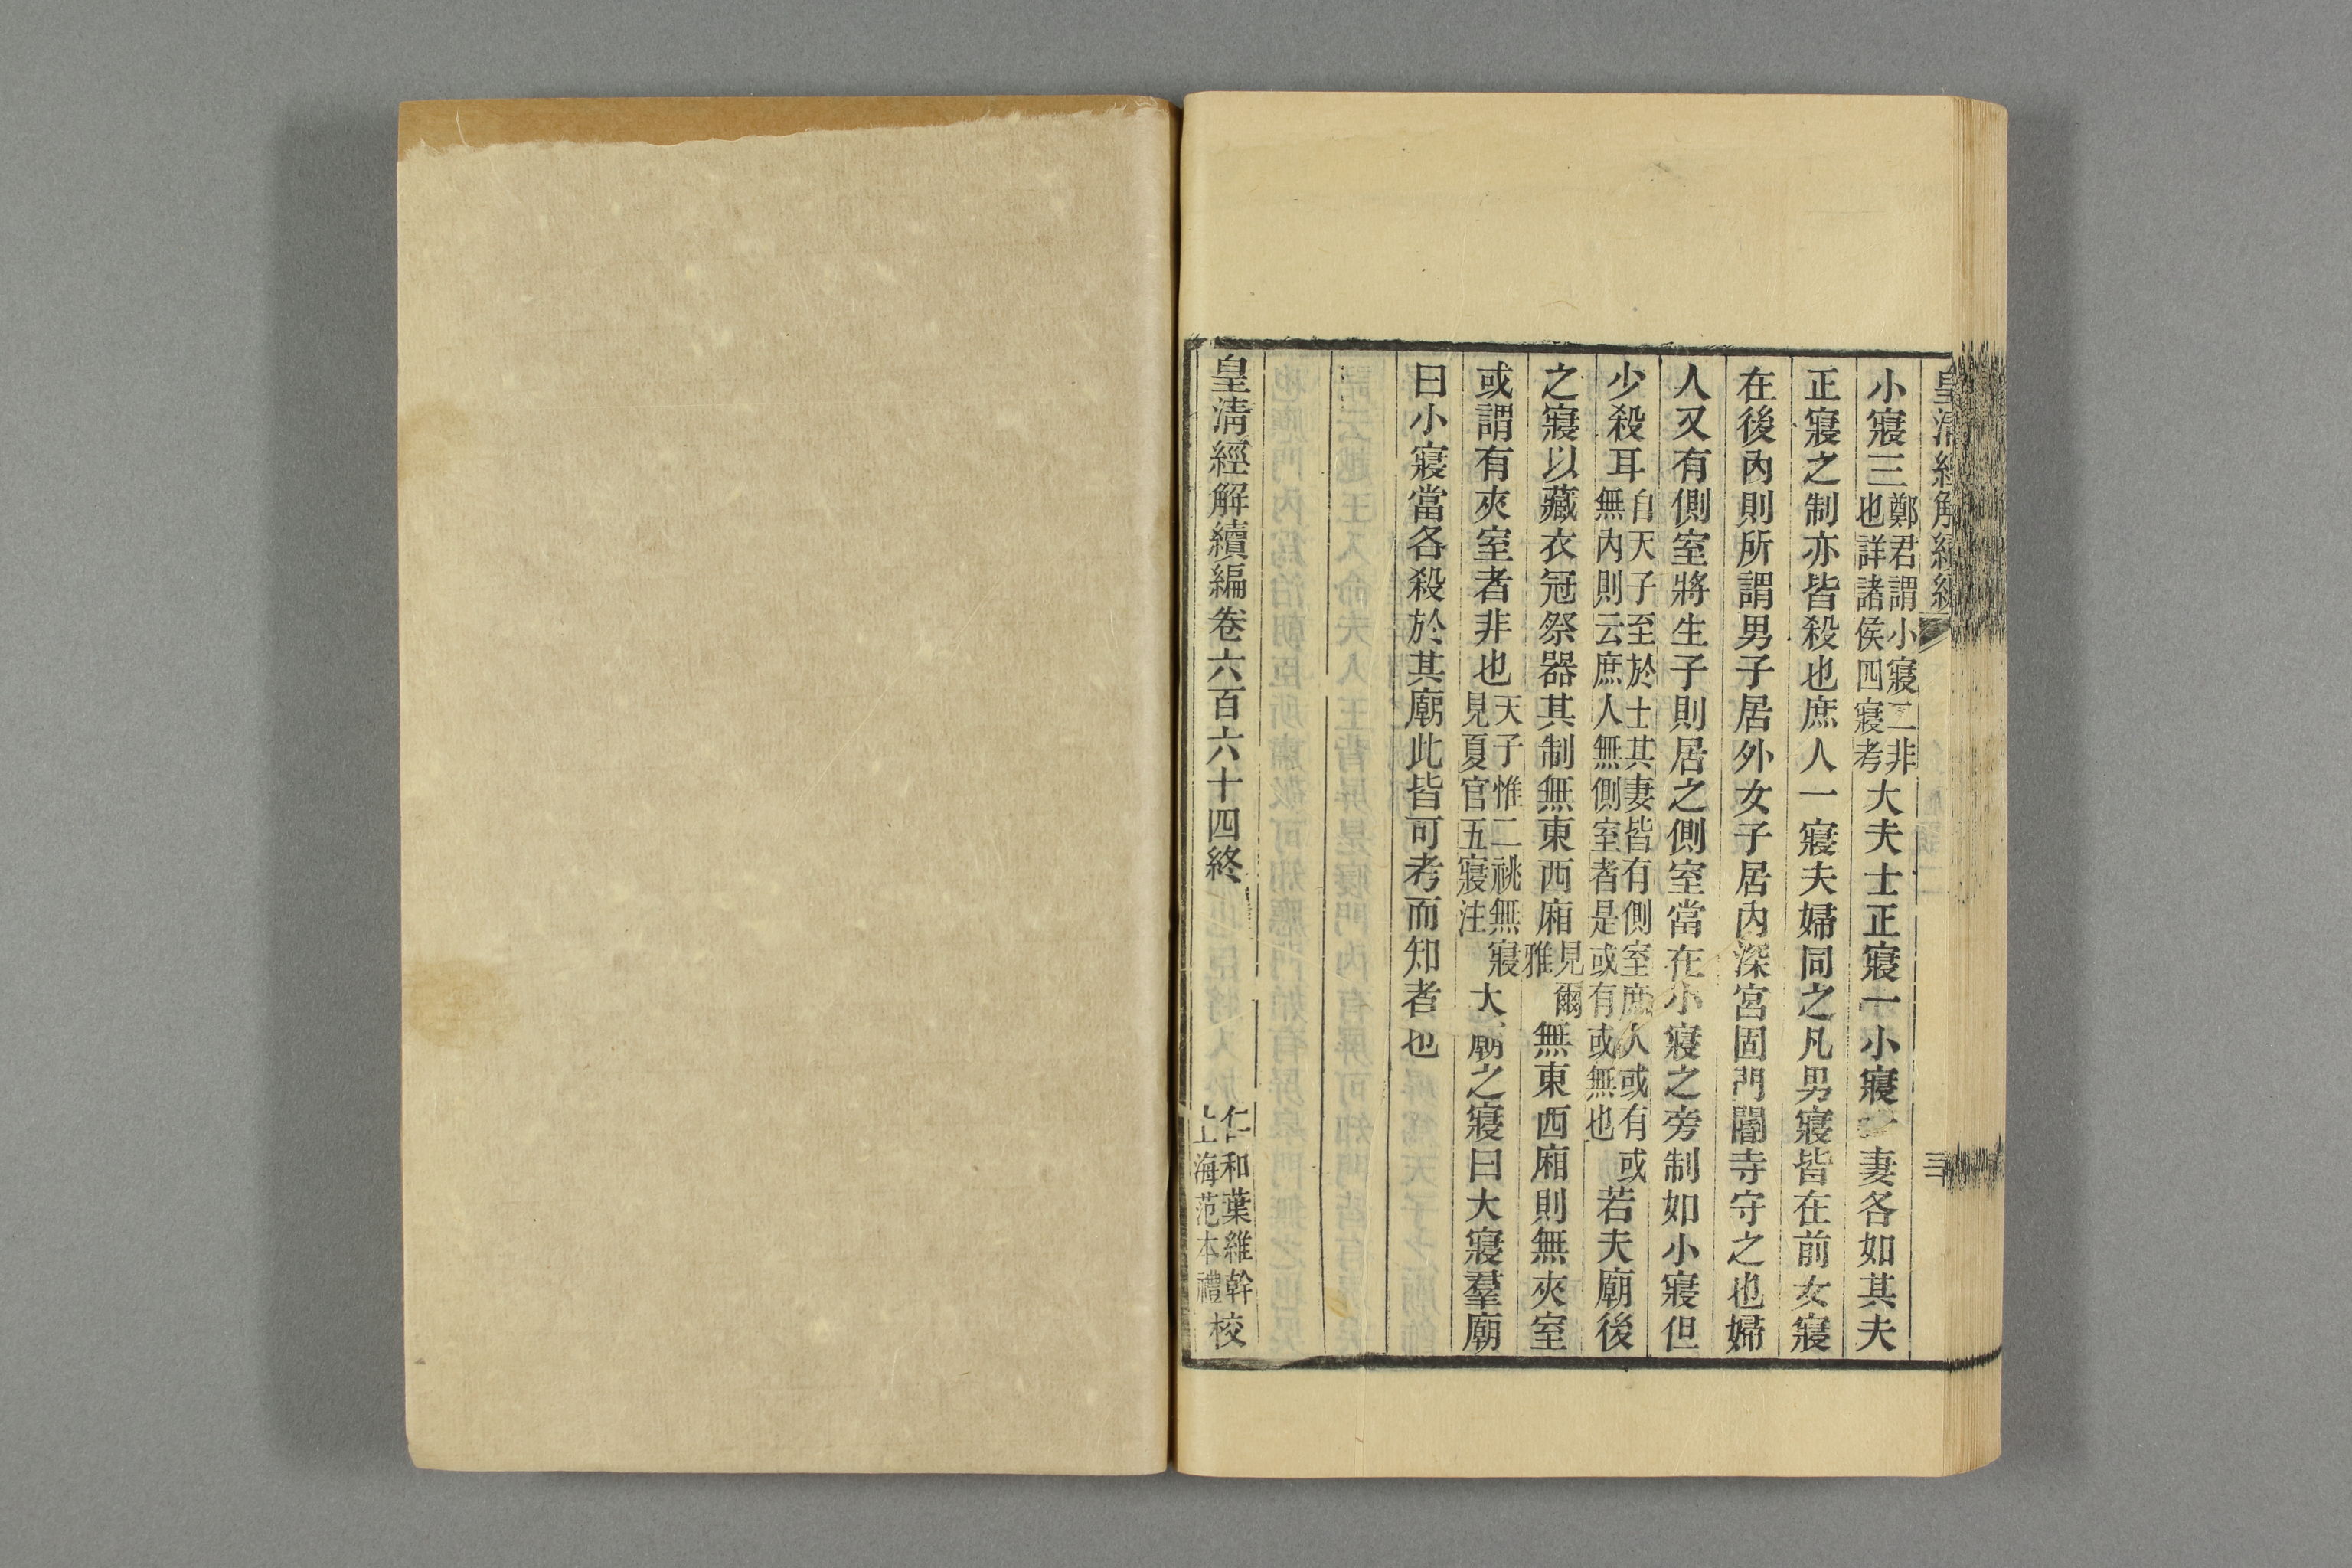 皇清經解續編 三
小寢三鄭君謂小寢二非也詳諸侯四寢考大夫士正寢一小寢 妻各如其夫
正寢之制亦皆殺也庶人一寢夫婦同之凡男寢皆在前女寢
在後內則所謂男子居外女子居內深宮固門閽寺守之也婦
人又有側室將生子則居之側室當在小寢之旁制如小寢但
少殺耳自天子至於士其妻皆有側室庶人或有或無內則云庶人無側室者是或有或無也若夫廟後
之寢以藏衣冠祭器其制無東西廂見爾雅無東西廂則無夾室
或謂有夾室者非也天子惟二祧無寢見夏官五寢注大廟之寢曰大寢羣廟
曰小寢當各殺於其廟此皆可考而知者也
皇清經解續編卷六百六十四終
仁和葉維幹
上海范本禮校